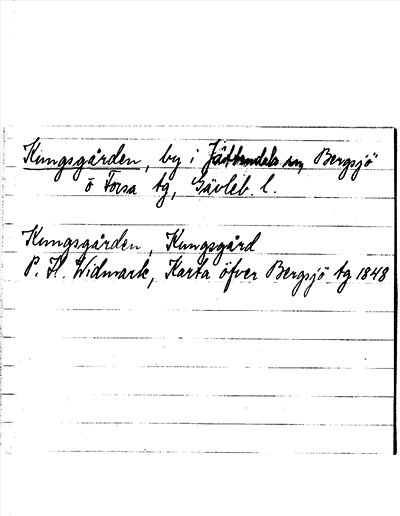 Kungsgården, by i Bergsjö
o Forsa tg, Gävleb. l.
Kungsgården, Kungsgård
P. H. Widmark, Karta öfver Bergsjö tg 1848